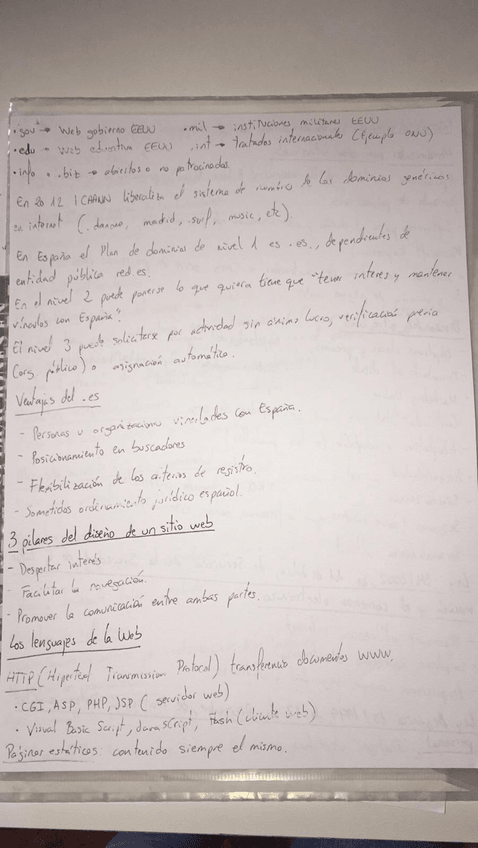 ·gov → Web gobierno EEUU ·mil → instituciones militares EEUU
·edu → Web educativa EEUU .int → tratados internacionales (Ejemplo ONU)
·info o .biz → abiertos o no patrocinados.
En 2012 ICAANN liberaliza el sistema de de los dominios genéricos
en internet (. , madrid, surf, music, etc).
En España el Plan de dominios de nivel 1 es .es., dependientes de
entidad pública red.es.
En el nivel 2 puede ponerse lo que quiera tiene que "tener interes y mantener
vínculos con España".
El nivel 3 puede solicitarse por actividad sin ánimo lucro, verificación previa
(org. público) o asignación automático.
Ventajas del .es
- Personas u organizaciones vinculadas con España.
- Posicionamiento en buscadores
- Flexibilización de los criterios de registro.
- Sometidos ordenamiento jurídico español.
3 pilares del diseño de un sitio web
- Despertar interés
- Facilitar la navegación.
- Promover la comunicación entre ambas partes.
Los lenguajes de la Web
HTTP (Hipertext Transmission Protocol) transferencia documentos WWW.
· CGI, ASP, PHP, JSP (servidor web)
· Visual Basic Script, JavaScript, Flash (cliente web)
Páginas estáticas: contenido siempre el mismo.